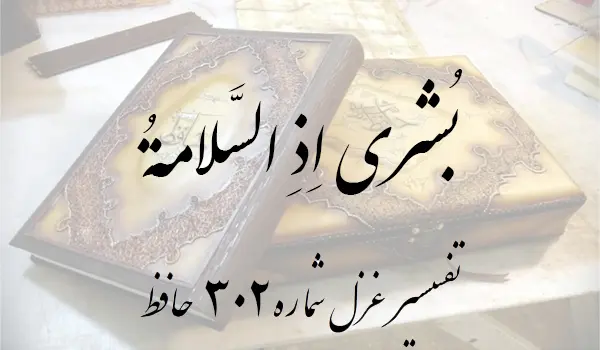 بُشری اِذِ السَّلامةُ
تفسیر غزل شماره ۳۰۲ حافظ